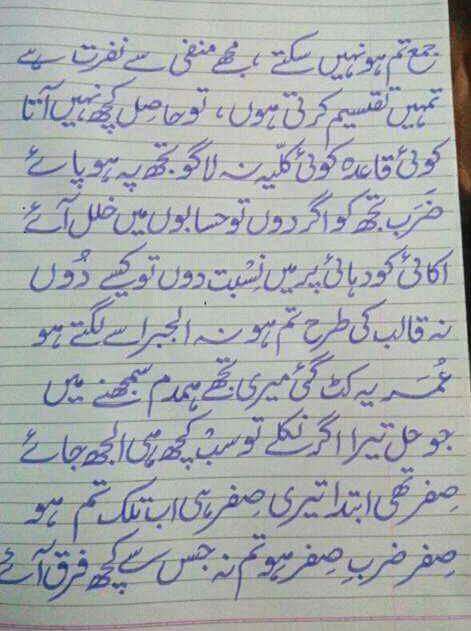 جمع تم ہو نہیں سکتے ، مجھے منفی سے نفرت ہے
تمہیں تقسیم کرتی ہوں ، تو حاصِل کچھ نہیں آتا
کوئی قاعدہ کوئی کلّیہ نہ لاگو تجھ پہ ہو پائے
ضَرَب تجھ کو اگر دوں تو حسابوں میں خلل آئے
اکائی کو دہائی پر میں نِسْبت دوں تو کیسے دُوں
نہ قالب کی طرح تم ہو نہ الجبرا سے لگتے ہو
عُمر یہ کٹ گئی میری تجھے ہمدم سمجھنے میں
جو حل تیرا اگر نکلے تو سبْ کچھ ہی الجھ جائے
صِفر تھی ابتدا تیری صِفر ہی اب تلک تم ہو
صِفر ضربِ صِفر ہو تم نہ جس سے کچھ فرق آئے